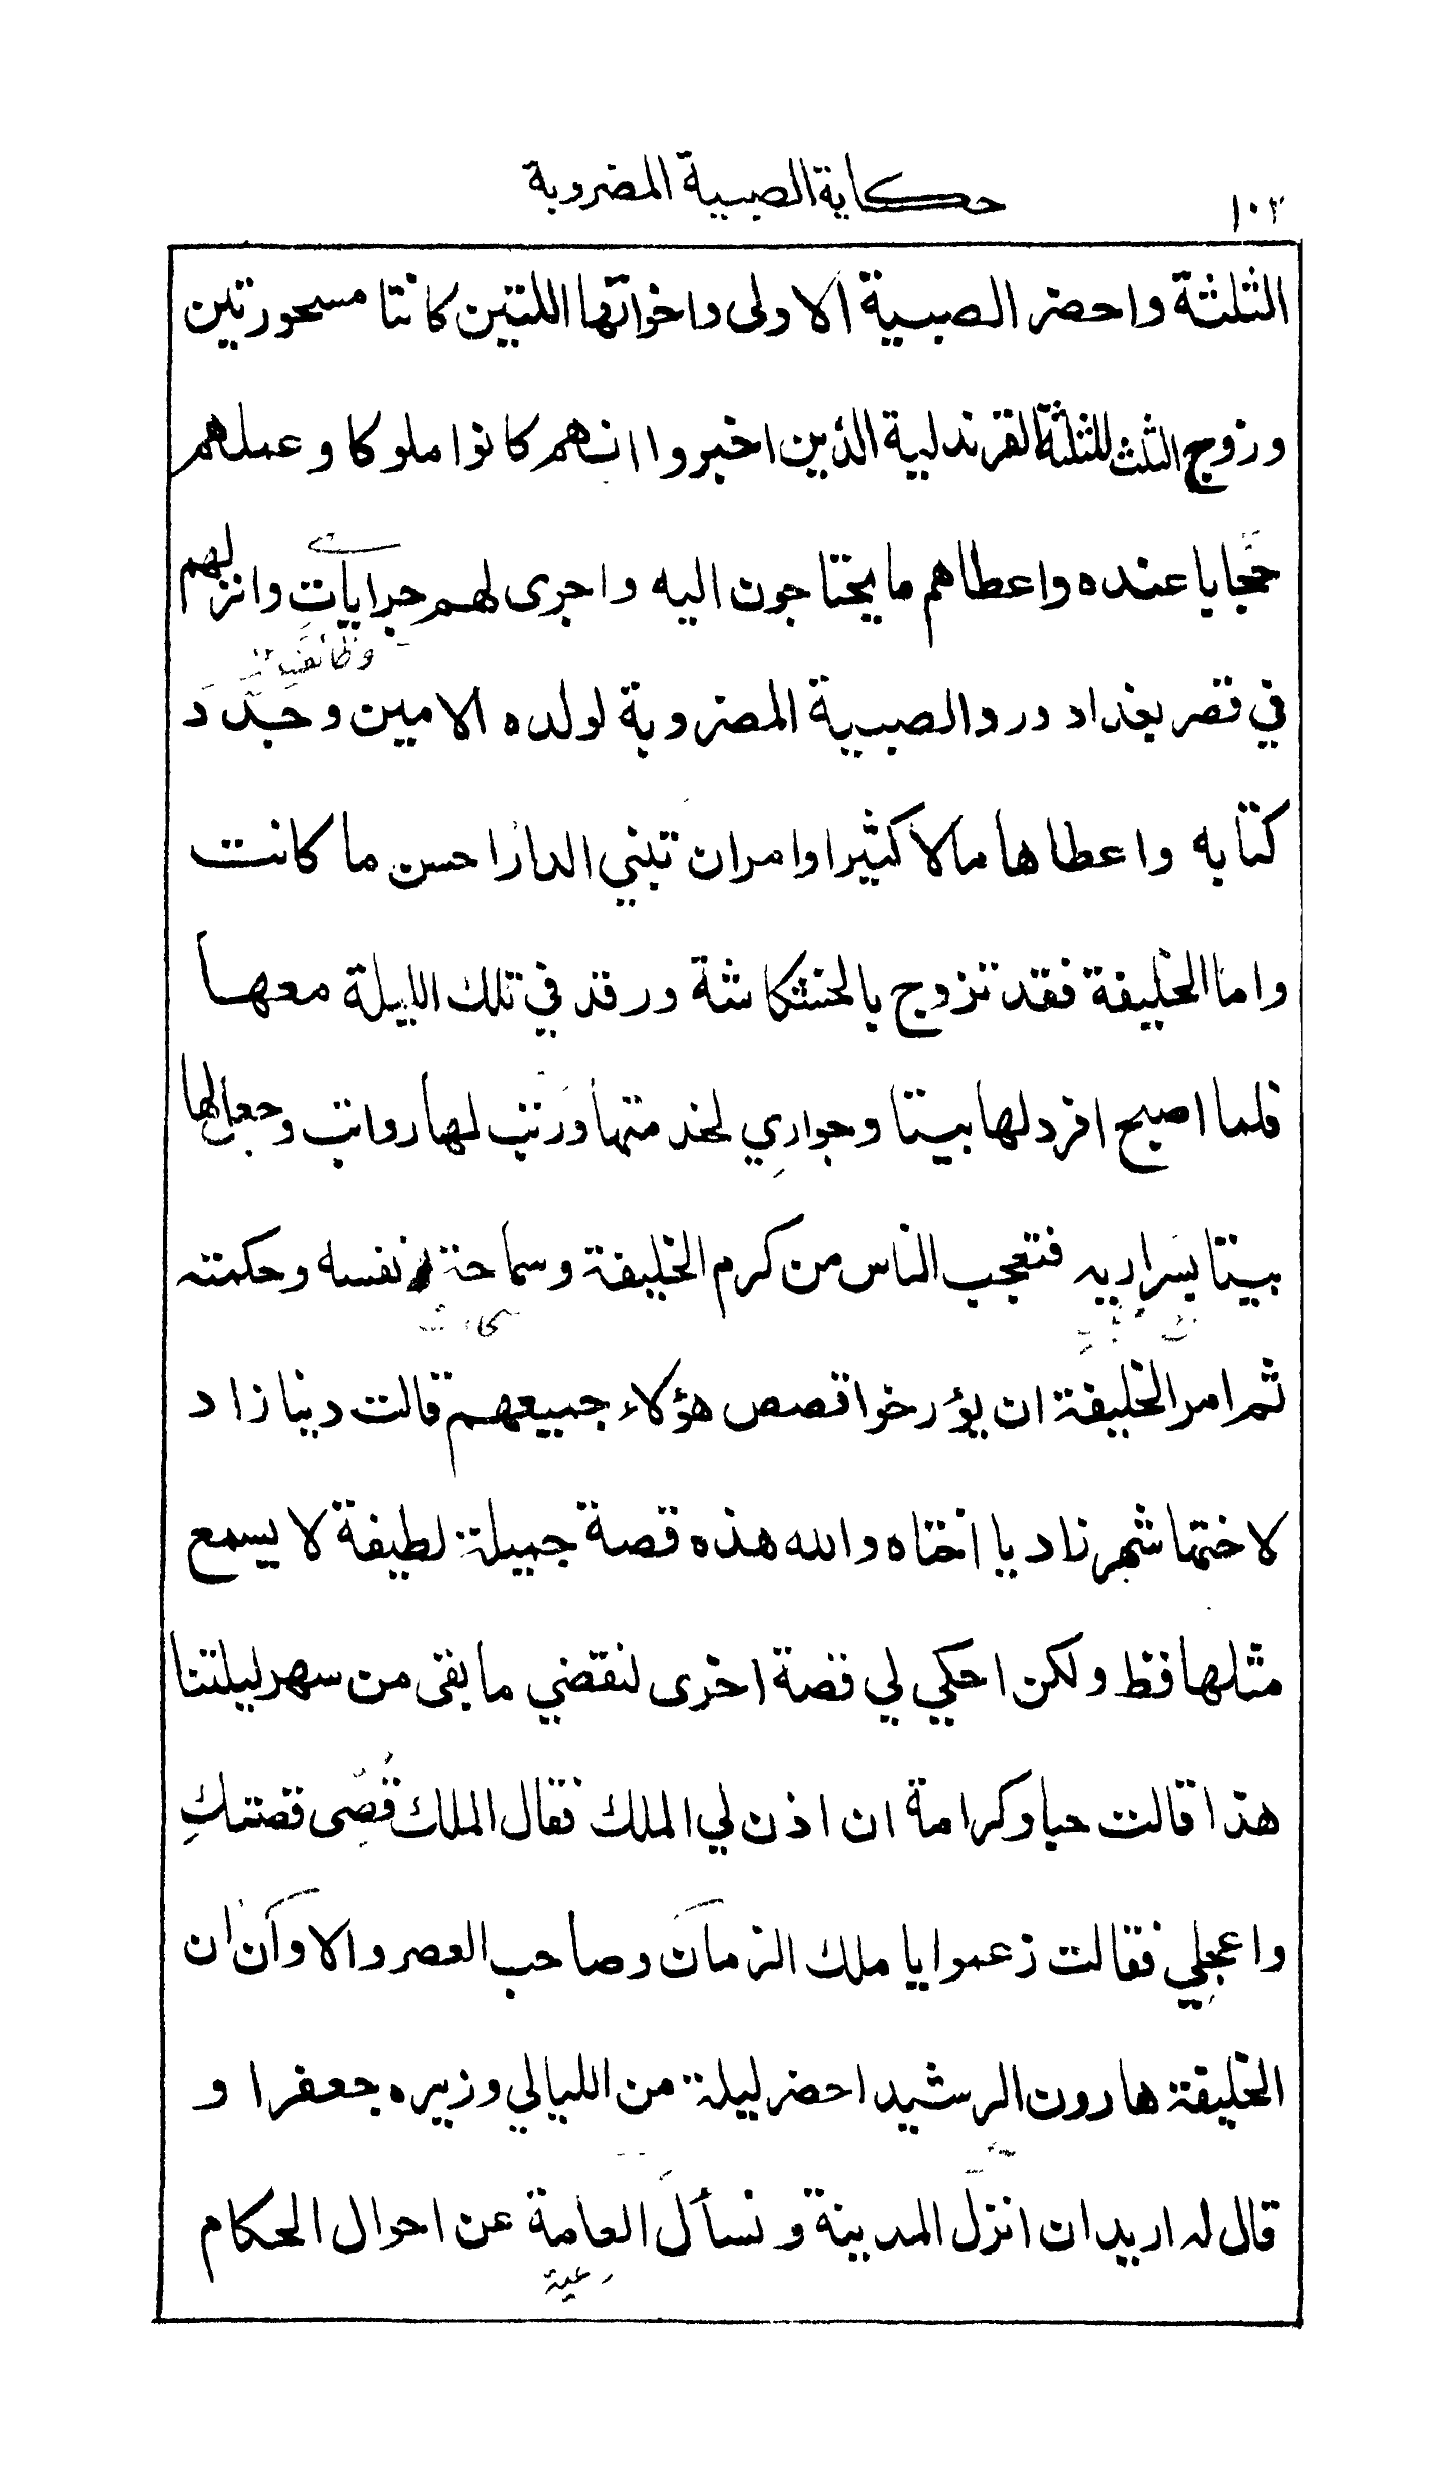 ١٠٢
حكاية الصبية المضروبة
الثلثة واحضر الصبية الاولى واخواتها اللتين كانتا مسحورتين
وزوج الثلث للثلثة القرندلية الذين اخبروا انهم كانوا ملوكا وعملهم
حجابا عنده واعطاهم ما يحتاجون اليه واجرى لهم جرايات وانزلهم
وظائف
في قصر بغداد ورد الصبية المضروبة لولده الامين وجدد
كتابه واعطاها مالا كثيرا وامر ان تبنى الدار احسن ما كانت
واما الخليفة فقد تزوج بالخشكاشة ورقد في تلك الليلة معها
فلما اصبح افرد لها بيتا وجواري لخدمتها ورتب لها رواتب وجعل لها
بيتا بسراريه فتعجب الناس من كرم الخليفة وسماحة نفسه وحكمته
ثم امر الخليفة ان يؤرخوا قصص هؤلاء جميعهم قالت دينازاد
لاختها شهرزاد يا اختاه والله هذه قصة جميلة لطيفة لا يسمع
مثلها قط ولكن احكي لي قصة اخرى لنقضي ما بقى من سهر ليلتنا
هذا قالت حبا وكرامة ان اذن لي الملك فقال الملك قُصِّى قصتكِ
واعجلي فقالت زعموا يا ملك الزمان وصاحب العصر والاوان ان
الخليفة هارون الرشيد احضر ليلة من الليالي وزيره جعفرا و
قال له اريد ان انزل المدينة ونسأل العامة عن احوال الحكام
رعية